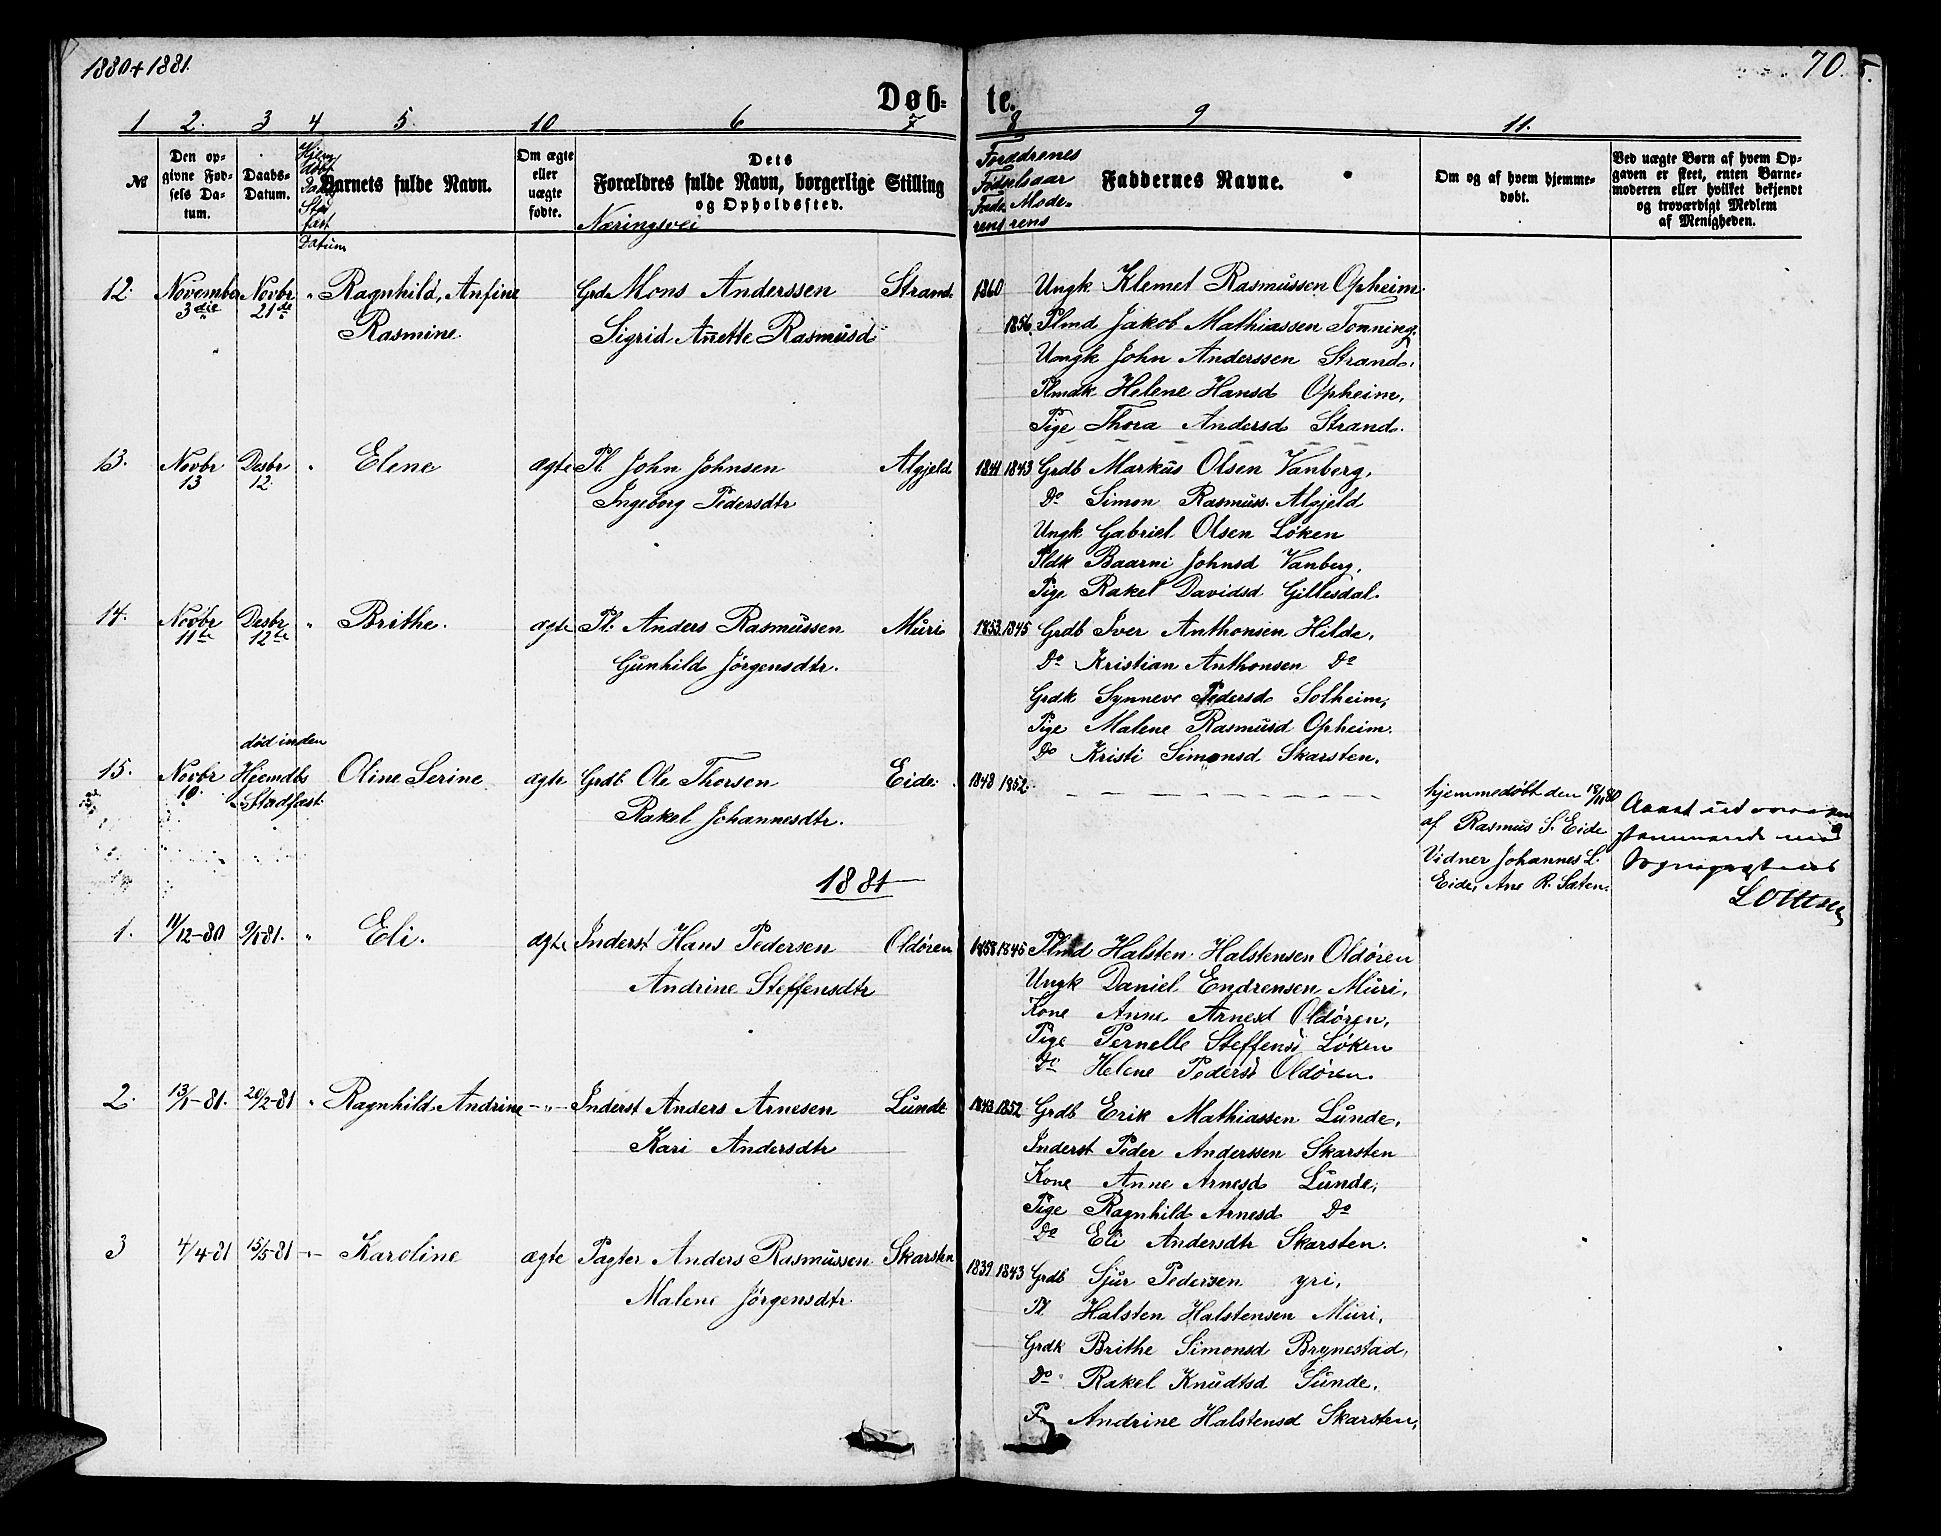 1880+1881.
70.
Døb-
te.
1 2. 3 4 5. 10 6 7 8 9 11.
№
Den op-
givne Fød-
sels Da-
tum.
Daabs-
Datum.
Hjem
døbt
Daabs
Stad
fæst
Datum
Barnets fulde Navn.
Om ægte
eller
uægte
fødte.
Dets
Forældres fulde Navn, borgerlige Stilling
og Opholdssted.
Næringsvei
Forældrenes
Fødselsaar
Fade- Mode-
rens rens
Faddernes Navne.
Om og af hvem hjemme-
døbt.
Ved uægte Børn af hvem Op-
gaven er skeet, enten Barne-
moderen eller hvilket bekjendt
og troværdigt Medlem
af Menigheden.
12. November Novbr " Ragnhild, Anfine Grd Mons Anderssen Strand 1860 Ungk Klemet Rasmussen Opheim
3die 21de Rasmine Sigrid Anette Rasmusd 1856. Plmd Jakob Mathiassen Tonning,
Ungk John Anderssen Strand,
Plmdk Helene Hansd Opheim,
Pige Thora Andersd Strand.
13. Novbr Desbr " Elene ægte Pl. John Johnsen Alsgjeld 1841 1843 Grdb Markus Olsen Vanberg,
13 12. Ingeborg Pedersdtr Do Simon Rasmuss. Algjeld
Ungk Gabriel Olsen Løken
Pldk Baarni Johnsd Vanberg,
Pige Rakel Davidsd Gillesdal.
14. Novbr Desbr " Brithe. ægte Pl. Anders Rasmussen Muri 1853. 1845 Grdb Iver Anthonsen Hilde,
11te 12te Gunhild Jørgensdtr. Do Kristian Anthonsen Do
Grdk Synneve Pedersd Solheim,
Pige Malene Rasmusd Opheim.
død inden Do Kristi Simonsd Skarsten.
15. Novbr Hjemdbs Oline Serine ægte Grdb. Ole Thorsen Eide. 1848 1852.
10. Stadfæst. Rakel Johannesdtr.
hjemmedøbt den 18/11 80
af Rasmus S. Eide
Vidner Johannes L.
Eide, Ane R. Sæten.
1881
1. 11/12-80 9/1 81. " Eli. ægte Inderst Hans Pedersen Oldøren 1858 1845 Plmd Halsten Halstensen Oldøren
Andrine Steffensdtr Ungk Daniel Endrensen Muri,
Kone Anne Arnesd Oldøren,
Pige Pernelle Steffensd Løken
Do Helene Pedersd Oldøren.
2. 13/1-81. 20/2-81 " Ragnhild Andrine -"- Inderst Anders Arnesen Lunde 1843. 1852 Grdb Erik Mathiassen Lunde,
Kari Andersdtr Inderst Peder Anderssen Skarsten
Kone Anne Arnesd Lunde,
Pige Ragnhild Arnesd Do
Do Eli Andersdtr Skarsten.
3 4/4-81 15/5-81 -"- Karoline ægte Pagter Anders Rasmussen Skarsten 1839 1843 Grdb Sjur Pedersen yri,
Malene Jørgensdtr Pl Halsten Halstensen Muri,
Grdk Brithe Simonsd Brynestad,
Do Rakel Knudtsd Sunde,
P. Andrine Halstensd Skarsten,